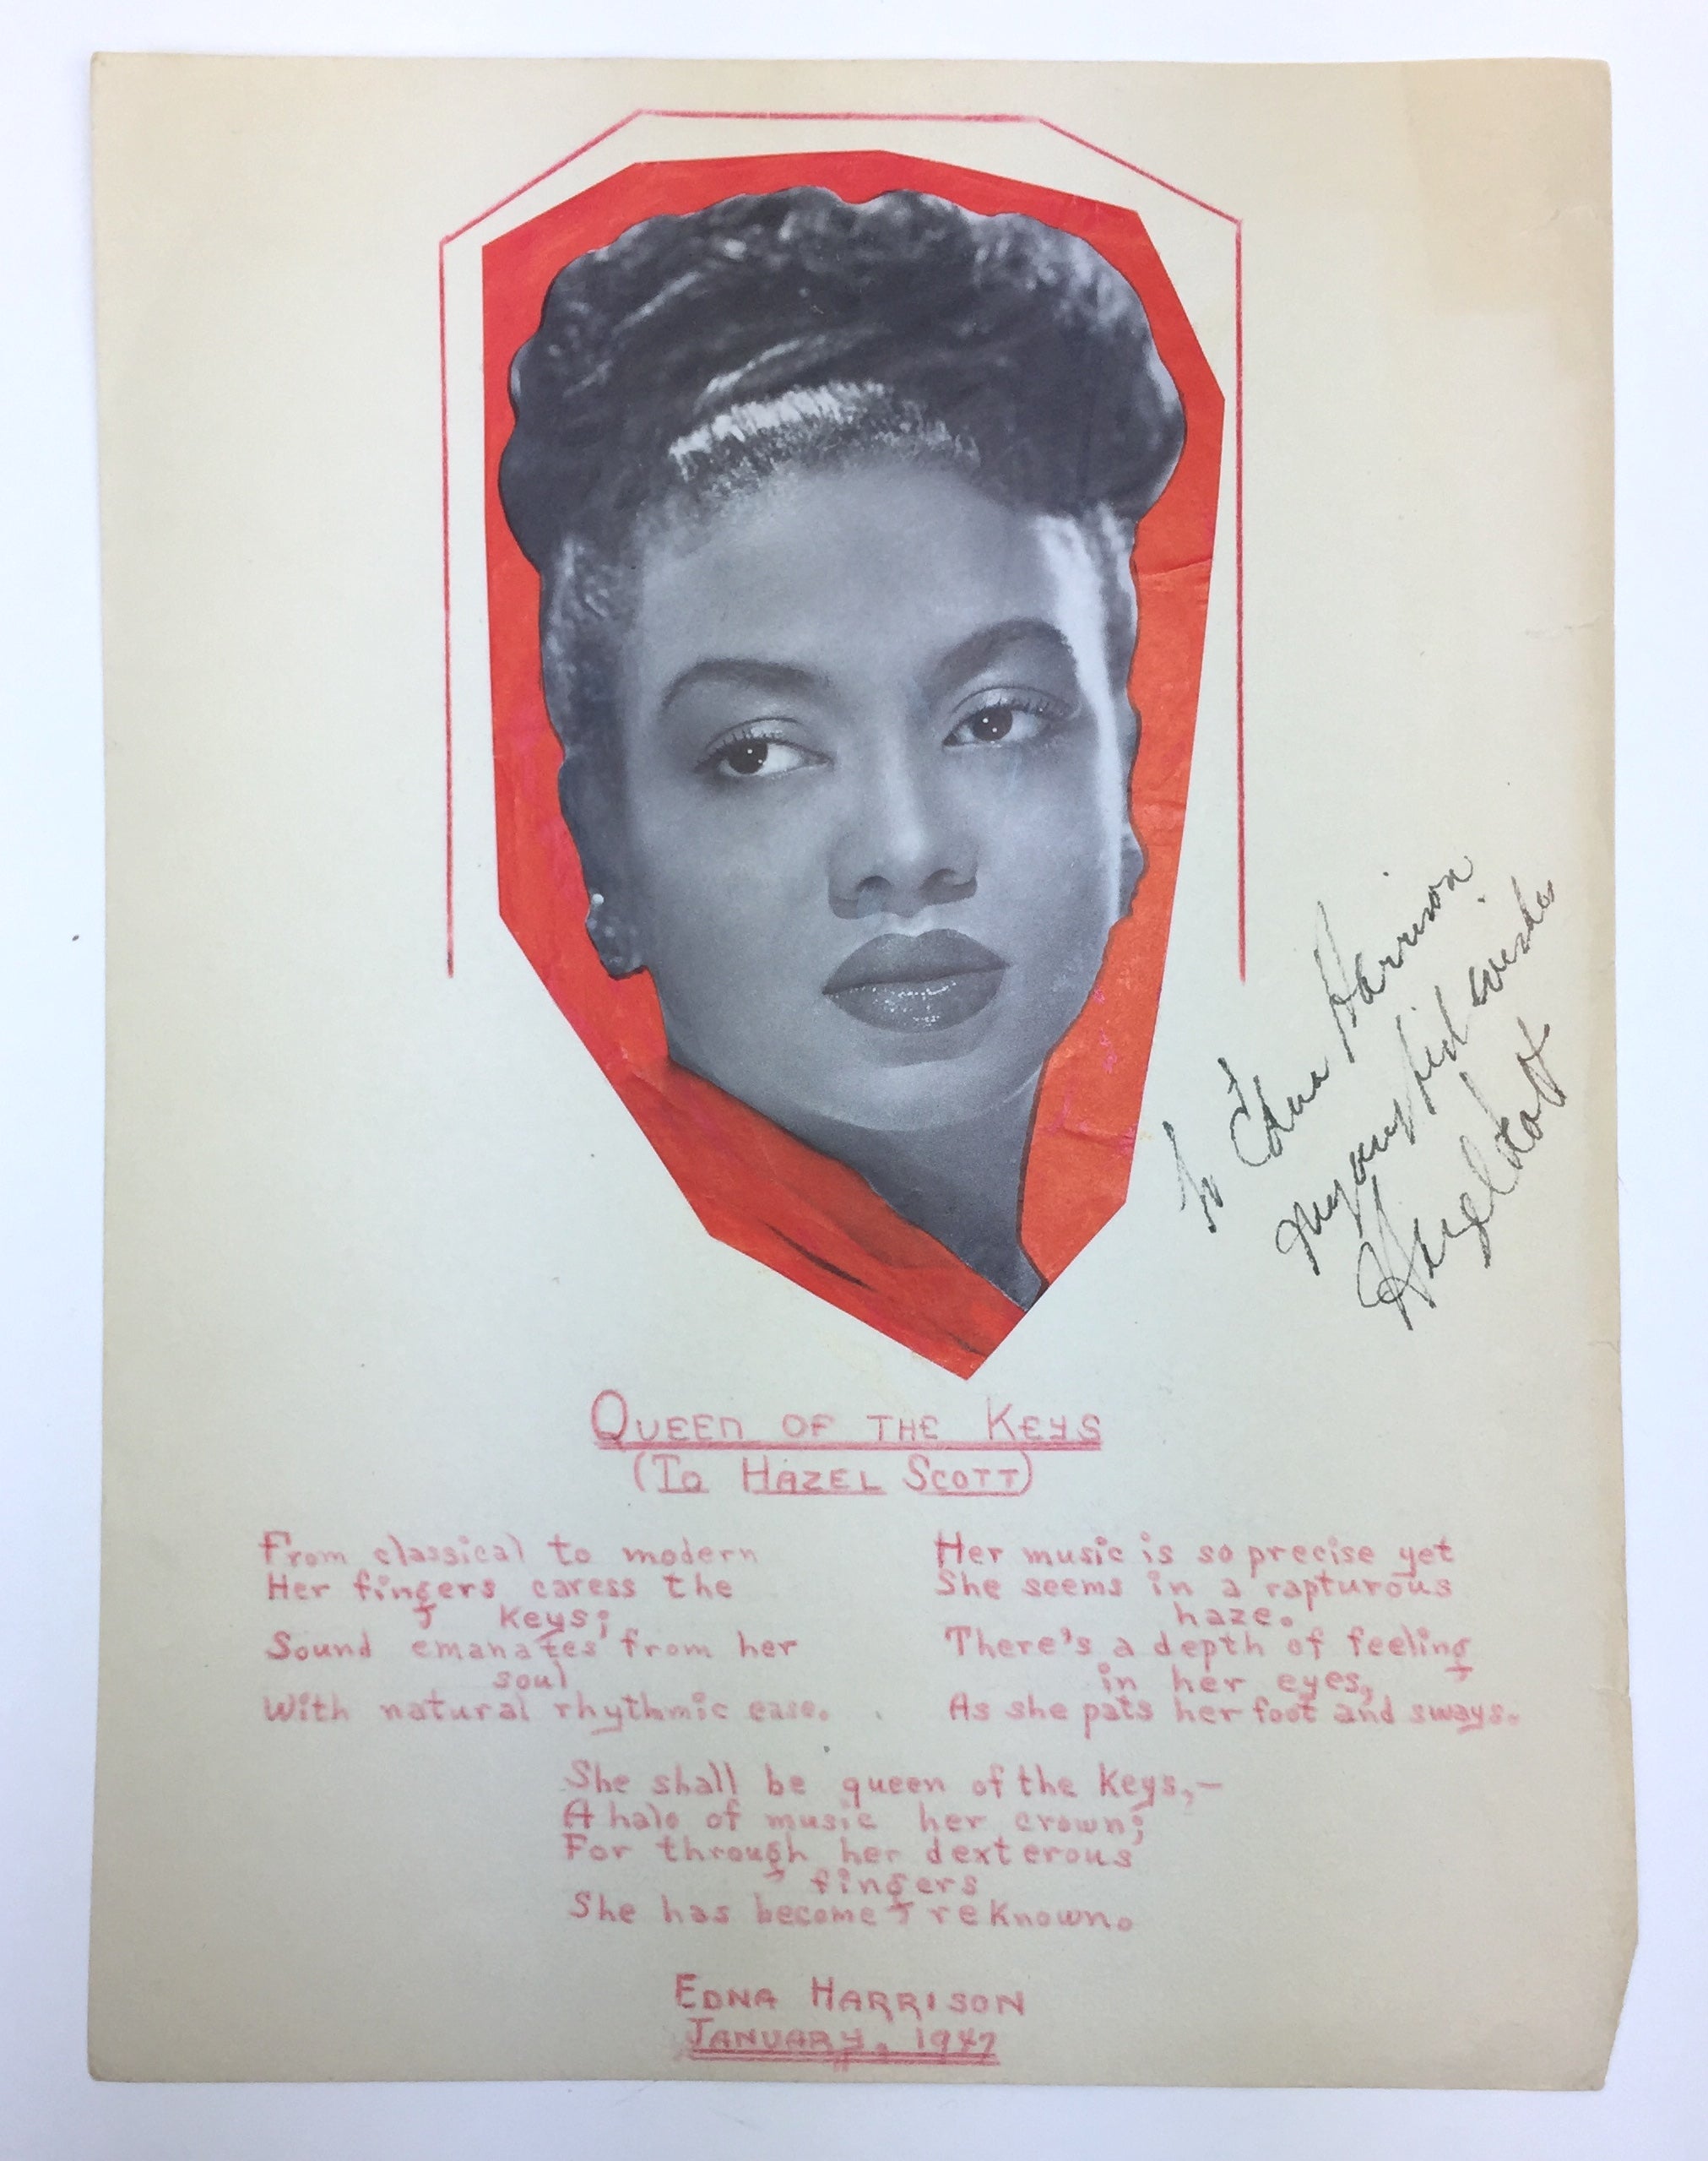 To Edna Harrison
My very best wishes
Hazel Scott
QUEEN OF THE KEYS
(TO HAZEL SCOTT)
From classical to modern
Her fingers caress the
keys;
Sound emanates from her
soul
With natural rhythmic ease.
Her music is so precise yet
She seems in a rapturous
haze.
There's a depth of feeling
in her eyes,
As she pats her foot and sways.
She shall be queen of the keys,—
A halo of music her crown;
For through her dexterous
fingers
She has become reknown.
EDNA HARRISON
JANUARY, 1947